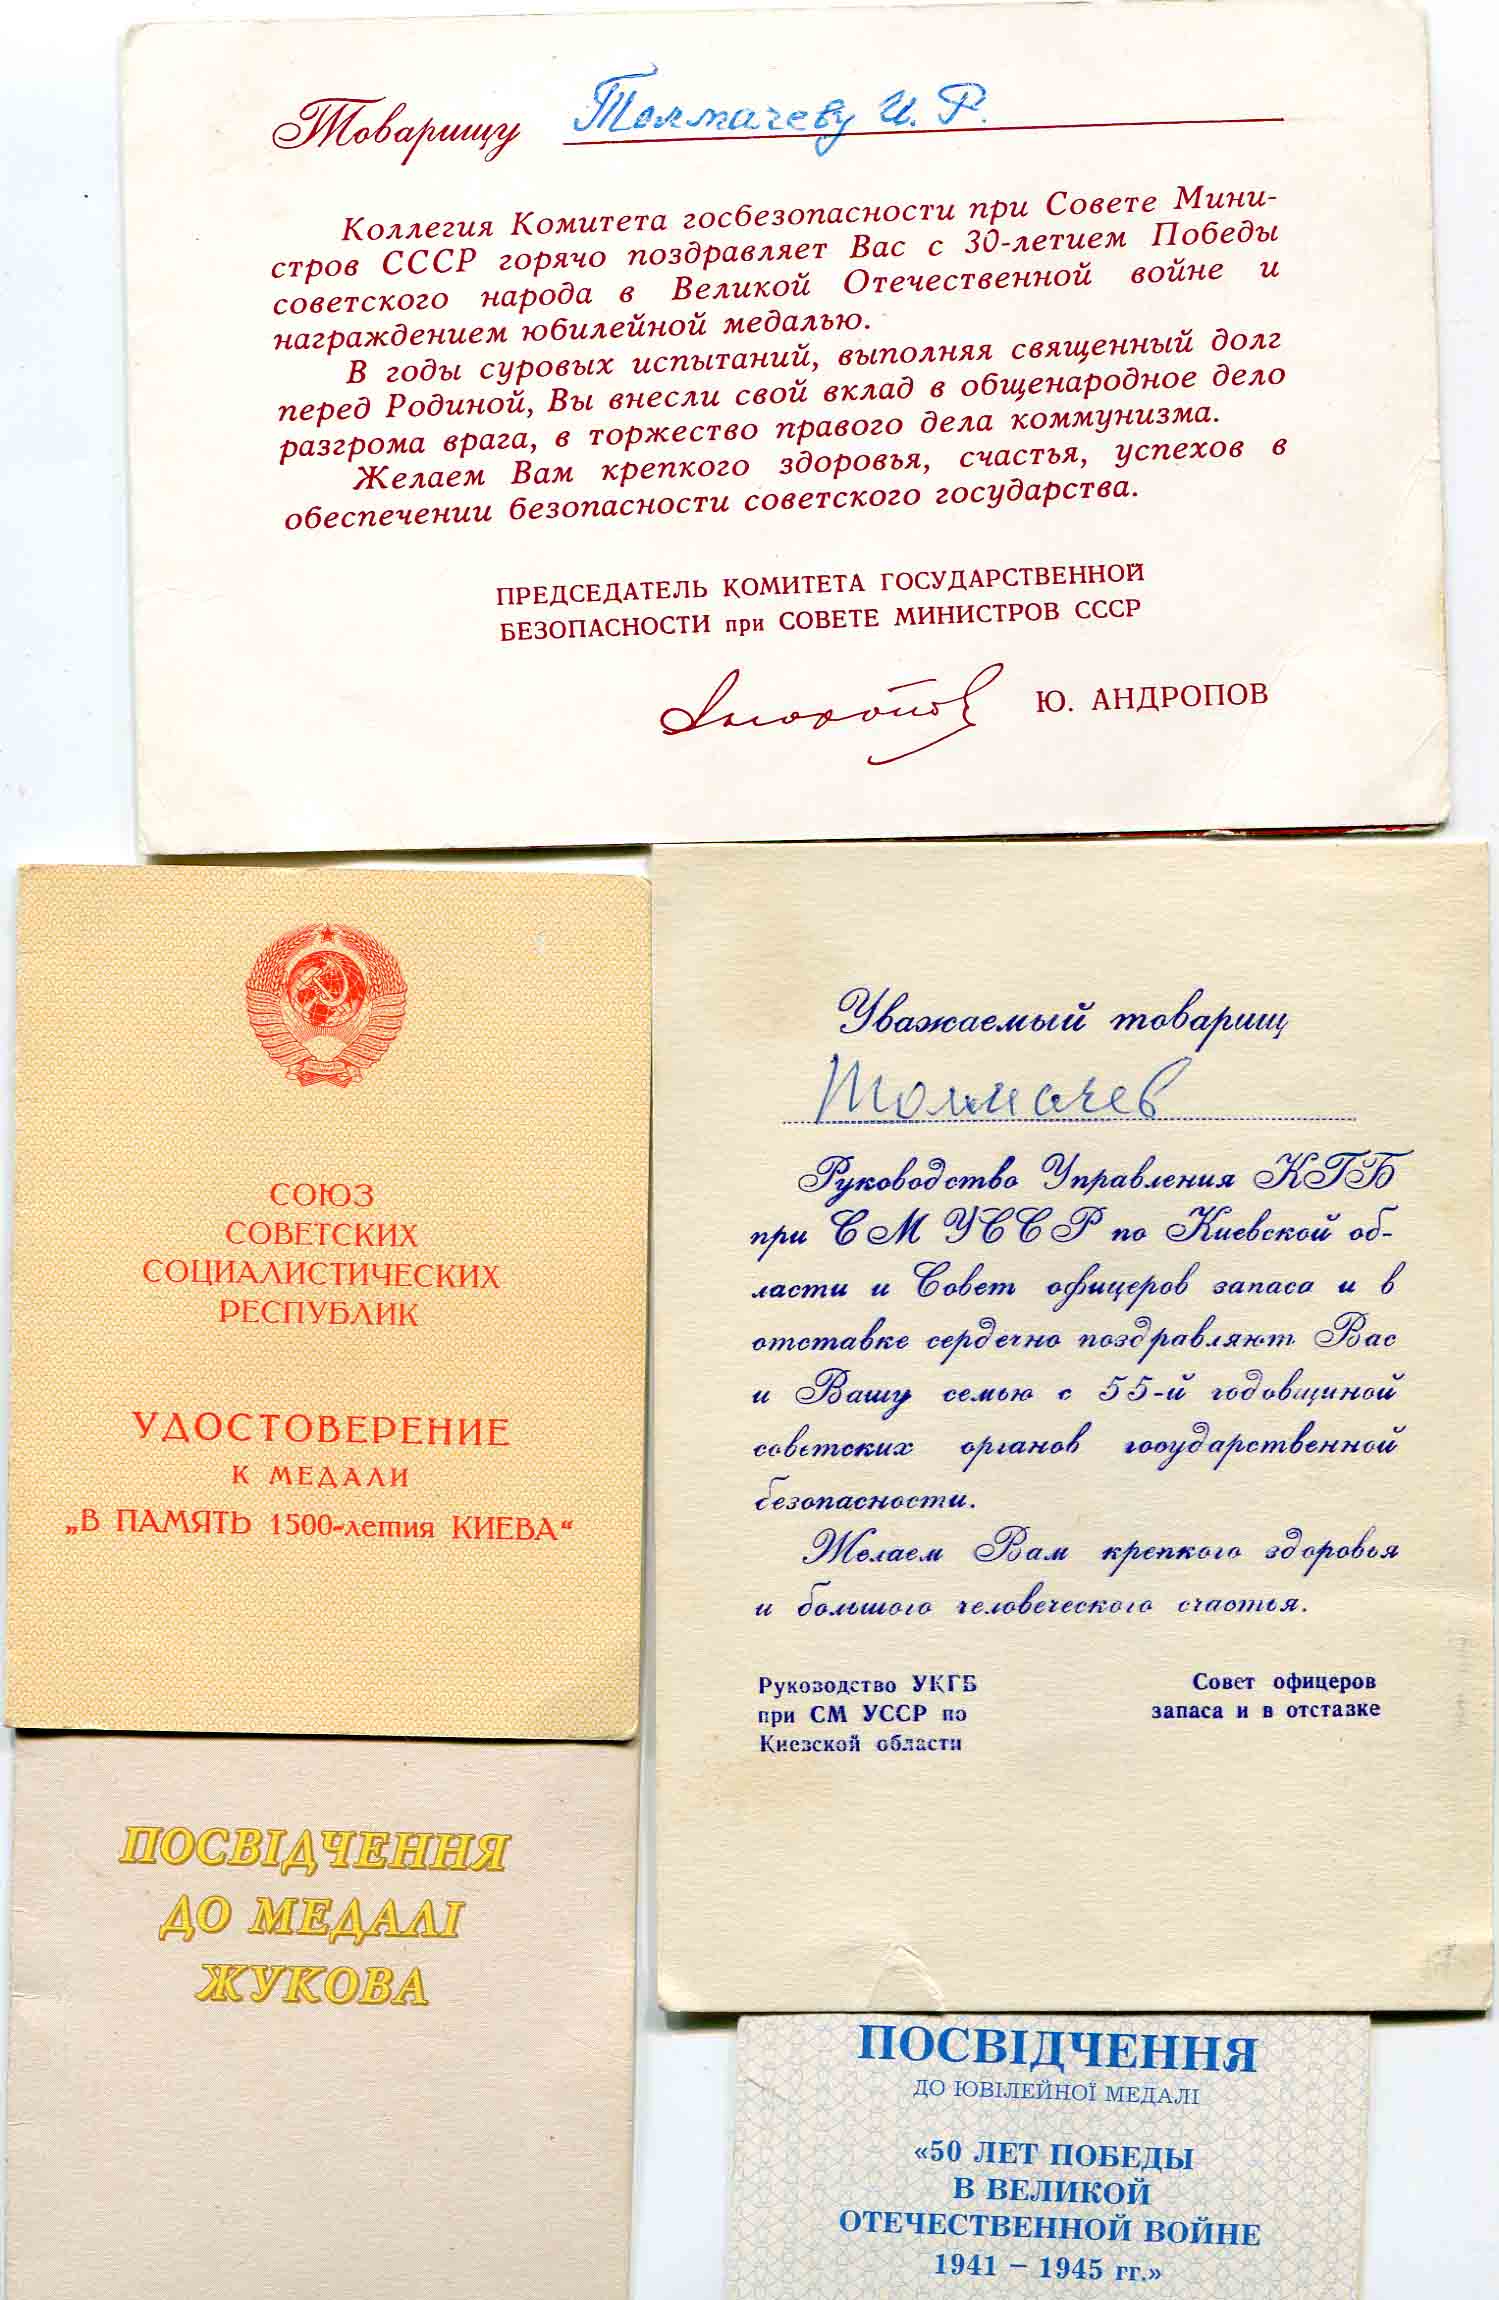 Товарищу Толмачеву И. Р.
Коллегия Комитета госбезопасности при Совете Мини-
стров СССР горячо поздравляет Вас с 30-летием Победы
советского народа в Великой Отечественной войне и
награждением юбилейной медалью.
В годы суровых испытаний, выполняя священный долг
перед Родиной, Вы внесли свой вклад в общенародное дело
разгрома врага, в торжество правого дела коммунизма.
Желаем Вам крепкого здоровья, счастья, успехов в
обеспечении безопасности советского государства.
ПРЕДСЕДАТЕЛЬ КОМИТЕТА ГОСУДАРСТВЕННОЙ
БЕЗОПАСНОСТИ при СОВЕТЕ МИНИСТРОВ СССР
Андропов Ю. АНДРОПОВ
СОЮЗ
СОВЕТСКИХ
СОЦИАЛИСТИЧЕСКИХ
РЕСПУБЛИК
УДОСТОВЕРЕНИЕ
К МЕДАЛИ
„В ПАМЯТЬ 1500-летия КИЕВА“
Уважаемый товарищ
Толмачев
Руководство Управления КГБ
при СМ УССР по Киевской об-
ласти и Совет офицеров запаса и в
отставке сердечно поздравляют Вас
и Вашу семью с 55-й годовщиной
советских органов государственной
безопасности.
Желаем Вам крепкого здоровья
и большого человеческого счастья.
Руководство УКГБ
при СМ УССР по
Киевской области
Совет офицеров
запаса и в отставке
ПОСВІДЧЕННЯ
ДО МЕДАЛІ
ЖУКОВА
ПОСВІДЧЕННЯ
ДО ЮВІЛЕЙНОЇ МЕДАЛІ
«50 ЛЕТ ПОБЕДЫ
В ВЕЛИКОЙ
ОТЕЧЕСТВЕННОЙ ВОЙНЕ
1941 – 1945 гг.»